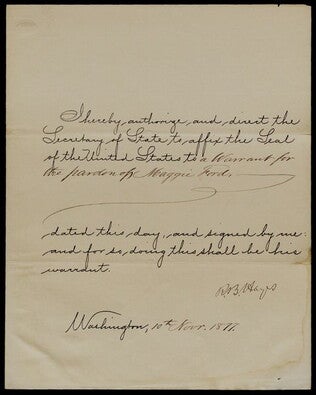 I hereby authorize, and direct the
Secretary of State to affix the Seal
of the United States to a Warrant for
the pardon of Maggie Ford.
dated this day, and signed by me:
and for so doing this shall be his
warrant.
R.B. Hayes
Washington, 10th Novr. 1877.